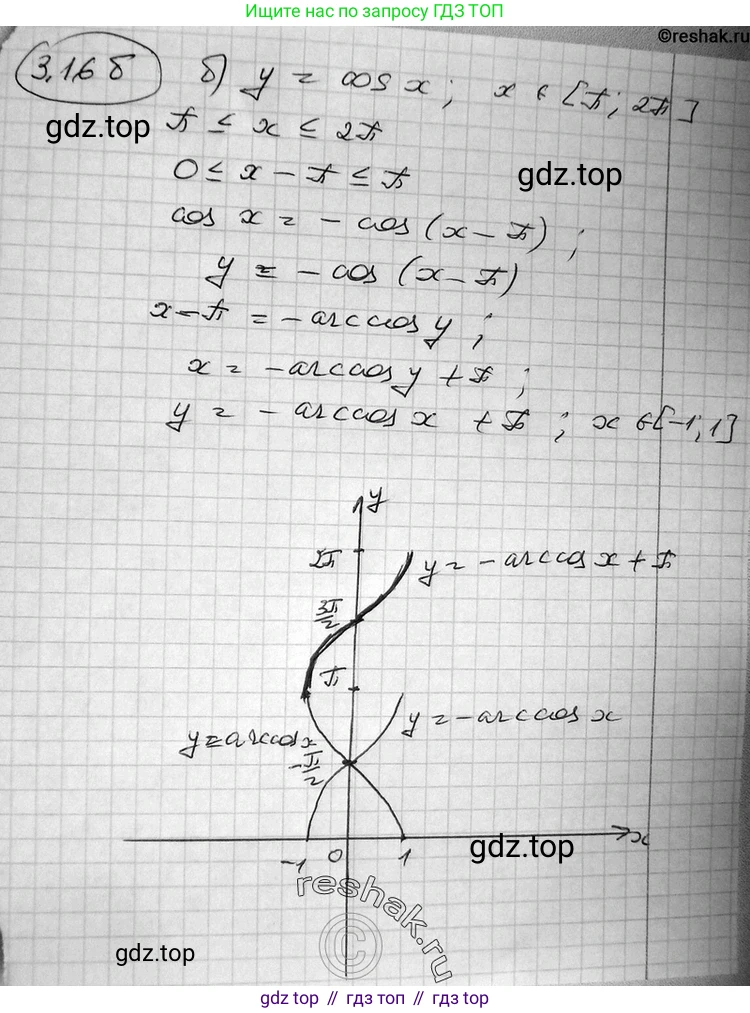 Ищите нас по запросу ГДЗ ТОП
©reshak.ru
3.16 б
б) y = cos x ; x ∈ [π; 2π]
gdz.top
π ≤ x ≤ 2π
0 ≤ x − π ≤ π
gdz.top
cos x = − cos (x − π) ;
y = − cos (x − π)
x − π = − arccos y ;
x = − arccos y + π ;
y = − arccos x + π ; x ∈ [−1; 1]
y
2π
y = − arccos x + π
3π/2
π
y = − arccos x
y = arccos x
−π/2
x
−1 0 1
gdz.top
reshak.ru
©
gdz.top
gdz top // гдз топ // gdz top